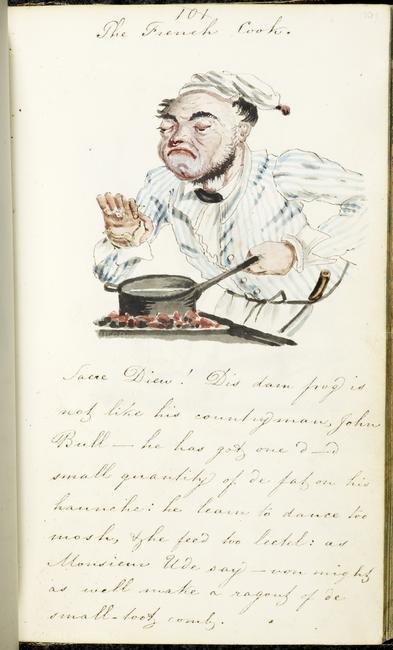 101
The French Cook.
Sacre Dieu! Dis dam frog is
not like his countryman, John
Bull — he has got one d—d
small quantity of de fat on his
haunche: he learn to dance too
mosh, & he feed too leetel: as
Monsieur Ude say — von might
as well make a ragout of de
small-toot comb.